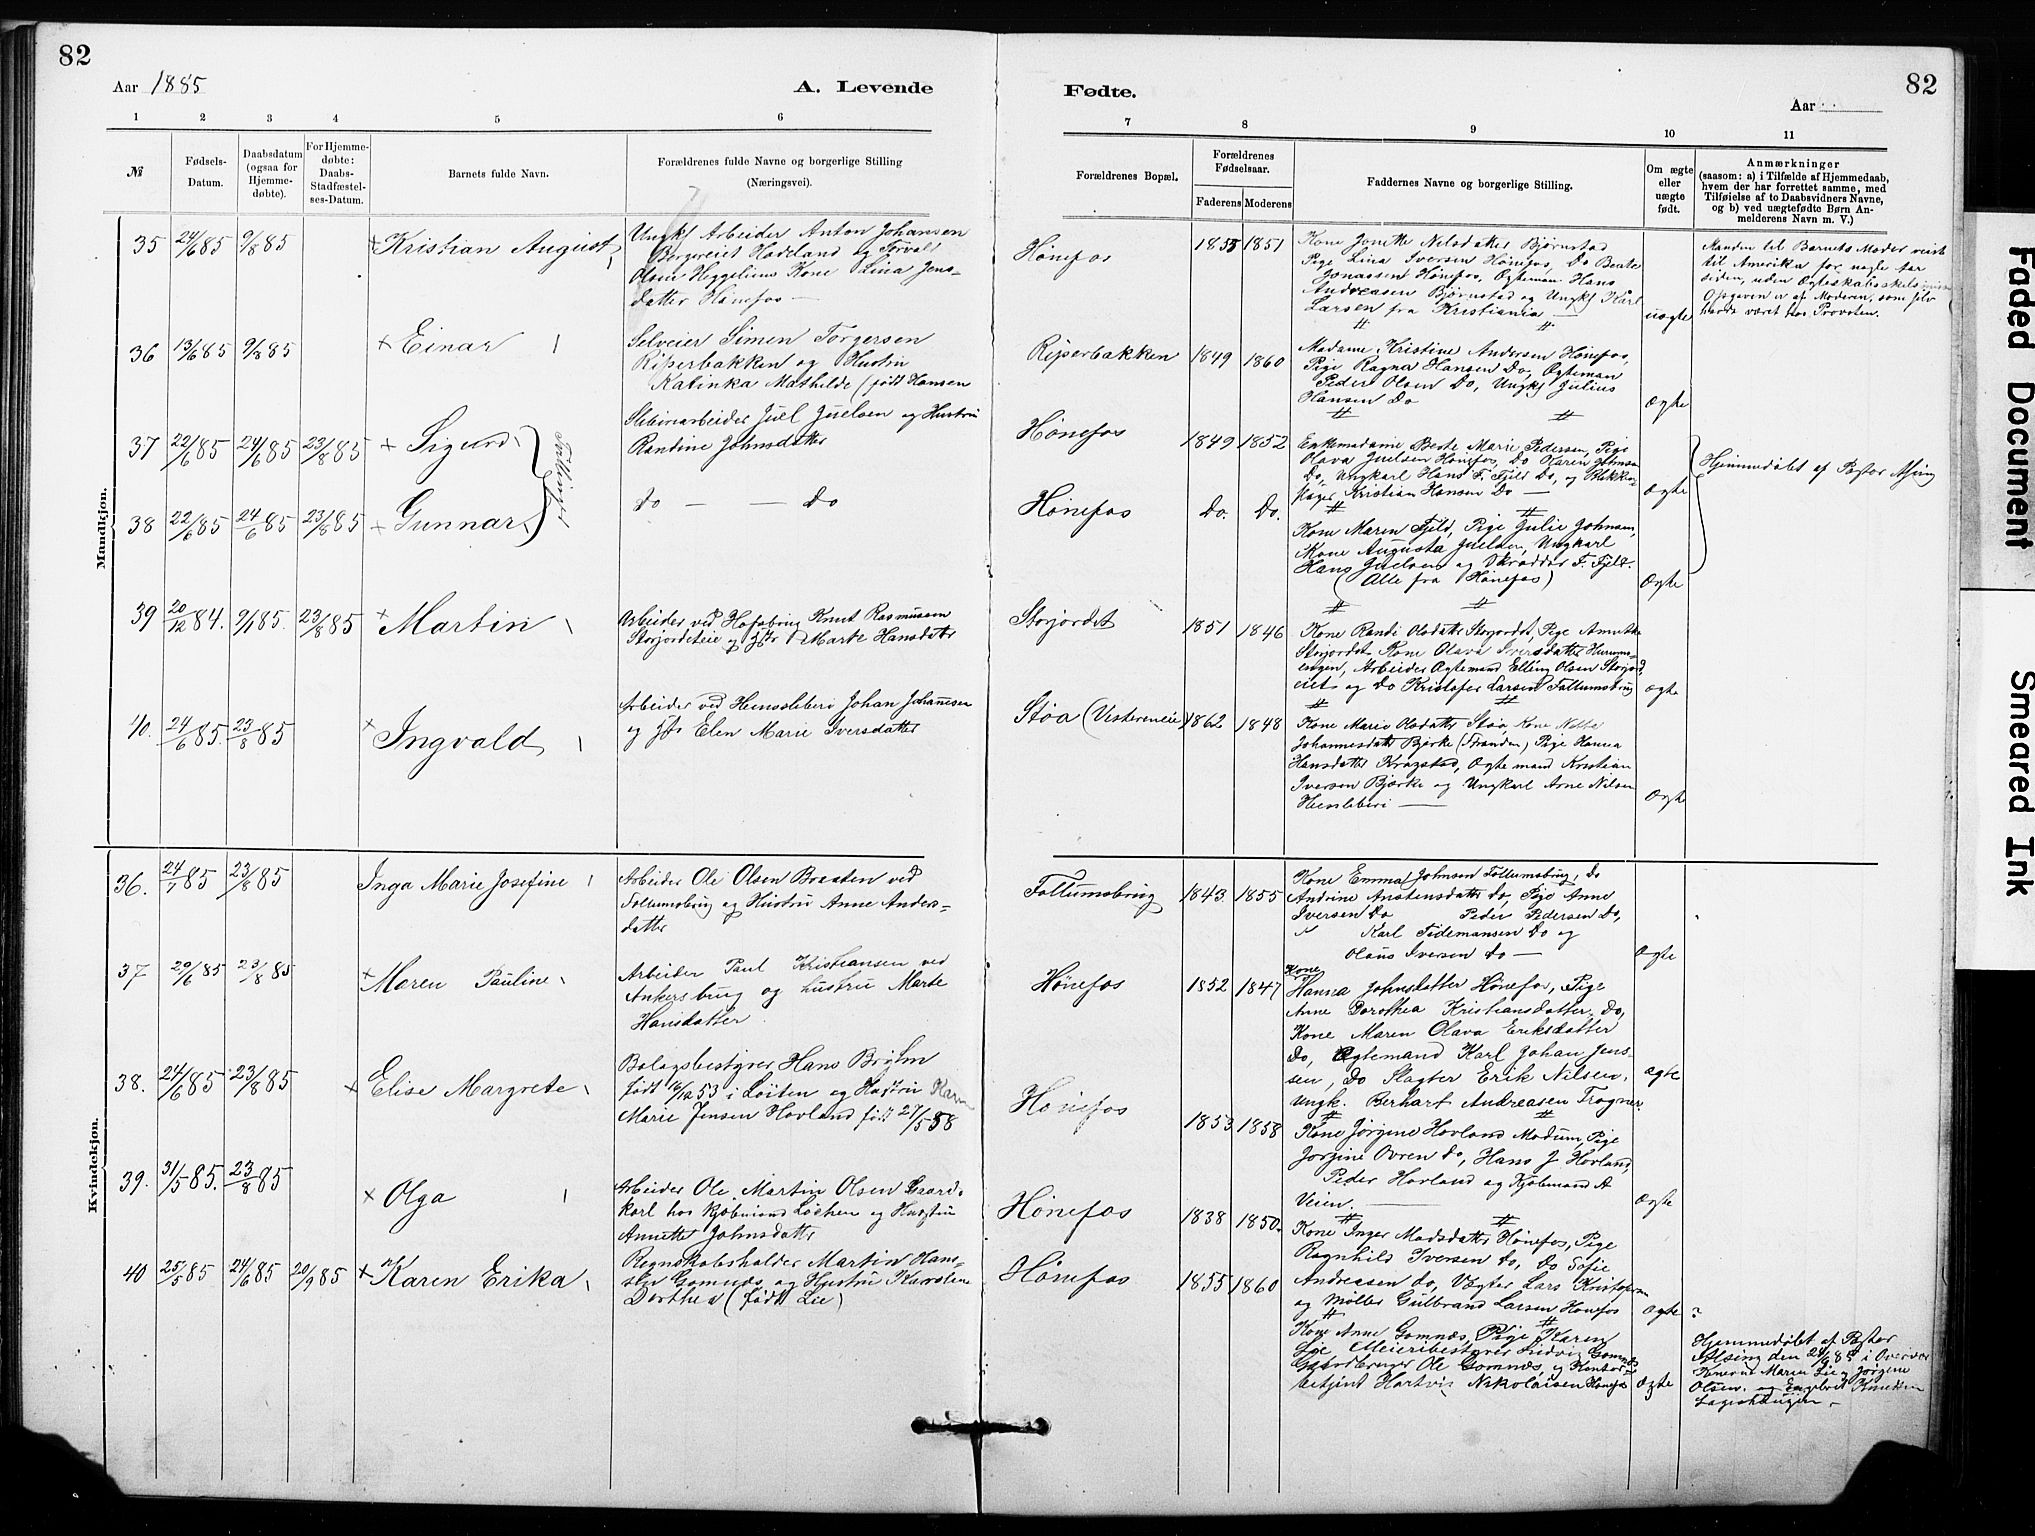 82
82
Aar 1885
A. Levende
Fødte.
Aar
1 2 3 4 5 6
7 8 9 10 11
№
Fødsels-
Datum.
Daabsdatum
(ogsaa for
Hjemme-
døbte).
For Hjemme-
døbte:
Daabs-
Stadfæstel-
ses-Datum.
Barnets fulde Navn.
Forældrenes fulde Navne og borgerlige Stilling
(Næringsvei).
Forældrenes Bopæl.
Forældrenes
Fødselsaar.
Faderens Moderens
Faddernes Navne og borgerlige Stilling.
Om ægte
eller
uægte
født.
Anmærkninger
(saasom: a) i Tilfælde af Hjemmedaab,
hvem der har forrettet samme, med
Tilføielse af to Daabsvidners Navne,
og b) ved uægtefødte Børn An-
melderens Navn m. V.)
Mandkjøn.
35 24/6 85 9/8 85 Kristian August
Ungkf Arbeider Anton Johansen
Bergereiet Hadeland og Torvald
Olsen Heggeliens Kone Lina Jens-
datter Hønefos —
Hønefos
1855 1851
Kone Jonette Nilsdatter Bjørnstad
Pige Lina Iversen Hønefos, Do Beate
Jonassen Hønefos, Ægteman Hans
Andreasen Bjørnstad og Ungkf Karl
Larsen fra Kristiania —
uægte
Manden til Barnets Moder reiste
til Amerika for nogle aar
siden, uden Ægteskabsskilsmisse
Opgaven er af Moderen, som selv
havde været hos Provsten.
36 13/6 85 9/8 85 Einar
Selveier Simen Torgersen
Riperbakken og Hustru
Katinka Mathilde (født Hansen
Riperbakken
1849 1860
Madame Kristine Andersen Hønefos,
Pige Ragna Hansen Do, Ægteman
Peder Olsen Do, Ungkf Julius
Hansen Do
Ægte
37 22/6 85 24/6 85 23/8 85 Sigurd
Tvillinger
Sliberiarbeider Juel Juelsen og Hustru
Randine Johnsdatter
Hønefos
1849 1852
Enkemadame Beate Marie Pedersen, Pige
Olava Juelsen Hønefos, Do Karen Johnsen
Do, Ungkarl Hans F. Fjeld Do, og Blikken-
slager Kristian Hansen Do —
Ægte
Hjemmedøbt af Pastor Alsing
38 22/6 85 24/6 85 23/8 85 Gunnar
Do — — Do
Hønefos
Do. Do.
Kone Maren Fjeld, Pige Julie Johnsen,
Kone Augusta Juelsen, Ungkarl
Hans Juelsen og Skrædder F. Fjeld.
(Alle fra Hønefos)
Ægte
39 20/12 84. 9/1 85. 23/8 85 Martin
Arbeider ved Hofsbrug Knut Rasmussen
Storjordeteie og Hstr Marte Hansdatter
Storjordet
1851 1846
Kone Randi Olsdatter Storjordet, Pige Annette
Storjordet Kone Olava Iversdatter Hurum-
engen, Arbeider Ægtemand Elling Olsen Storjord-
eiet og Do Kristofer Larsen Follumsbrug
Ægte
40. 24/6 85. 23/8 85 Ingvald
Arbeider ved Hensliberi Johan Johannesen
og H. Elen Marie Iversdatter
Støa (Vestereneie)
1862 1848
Kone Marie Olsdatter Støa, Kone
Johannesdatter Bjerke (Stranden) Pige Hanna
Hansdatter Kragstad, Ægtemand Kristian
Iversen Bjerke og Ungkarl Arne Nilsen
Hensliberi —
Ægte
Kvindekjøn.
36. 24/7 85 23/8 85 Inga Marie Josefine
Arbeider Ole Olsen Braaten ved
Follumsbrug og Hustru Anne Anders-
datter
Follumsbrug
1843 1855
Kone Emma Johnsen Follumsbrug, Do
Andrine Anstensdatter Do, Pige Anne
Iversen Do Peder Pedersen Do,
Karl Tidemansen Do og
Olaus Iversen Do —
Ægte
37 29/6 85 23/8 85 Maren Pauline
Arbeider Paul Kristiansen ved
Ankersbrug og Hustru Marte
Hansdatter
Hønefos
1852 1847
Kone
Hanna Johnsdatter Hønefos, Pige
Anne Dorothea Kristiansdatter Do,
Kone Maren Olava Eriksdatter
Do, Ægtemand Karl Johan Jens-
sen, Do Slagter Erik Nilsen,
Ungk. Berhart Andreasen Trogner.
Ægte
38. 24/6 85 23/8 85 Elise Margrete
Bolagsbestyrer Hans Bryhn
født 16/12 53 i Løiten og Hustru Karen
Marie Jensen Hovland født 27/5 58
Hønefos
1853 1858
Kone Jørgine Hovland Modum, Pige
Jørgine Ovren Do, Hans J Hovland,
Peder Hovland og Kjøbmand A
Veien.
Ægte
39. 31/5 85. 23/8 85 Olga
Arbeider Ole Martin Olsen Gaard-
karl hos Kjøbmand Løchen og Hustru
Annette Johnsdatter
Hønefos
1838 1850.
Kone Inger Madsdatter Hønefos, Pige
Ragnhild Iversen Do, Do Sofie
Andreasen Do, Vægter Lars Kristofersen
og Møller Gulbrand Larsen Hønefos
Ægte
40 25/5 85 24/6 85 20/9 85 Karen Erika
Regnskabsholder Martin Hans-
sen Gomnæs og Hustru Karoline
Dorthea (født Lie)
Hønefos
1855 1860
Kone Anne Gomnæs, Pige Karen
Lie Meieribestyrer Ludvig Gomnæs
Gaardbruger Ole Gomnæs, og Kontor-
betjent Hartvig Nikolaisen Hønefos
Ægte
?
Hjemmedøbt af Pastor
Alsing den 24/9 85 i Overvær
Maren Lie og Jørgine
Olsen. og Engebret Knutsen
Faded Document Smeared Ink